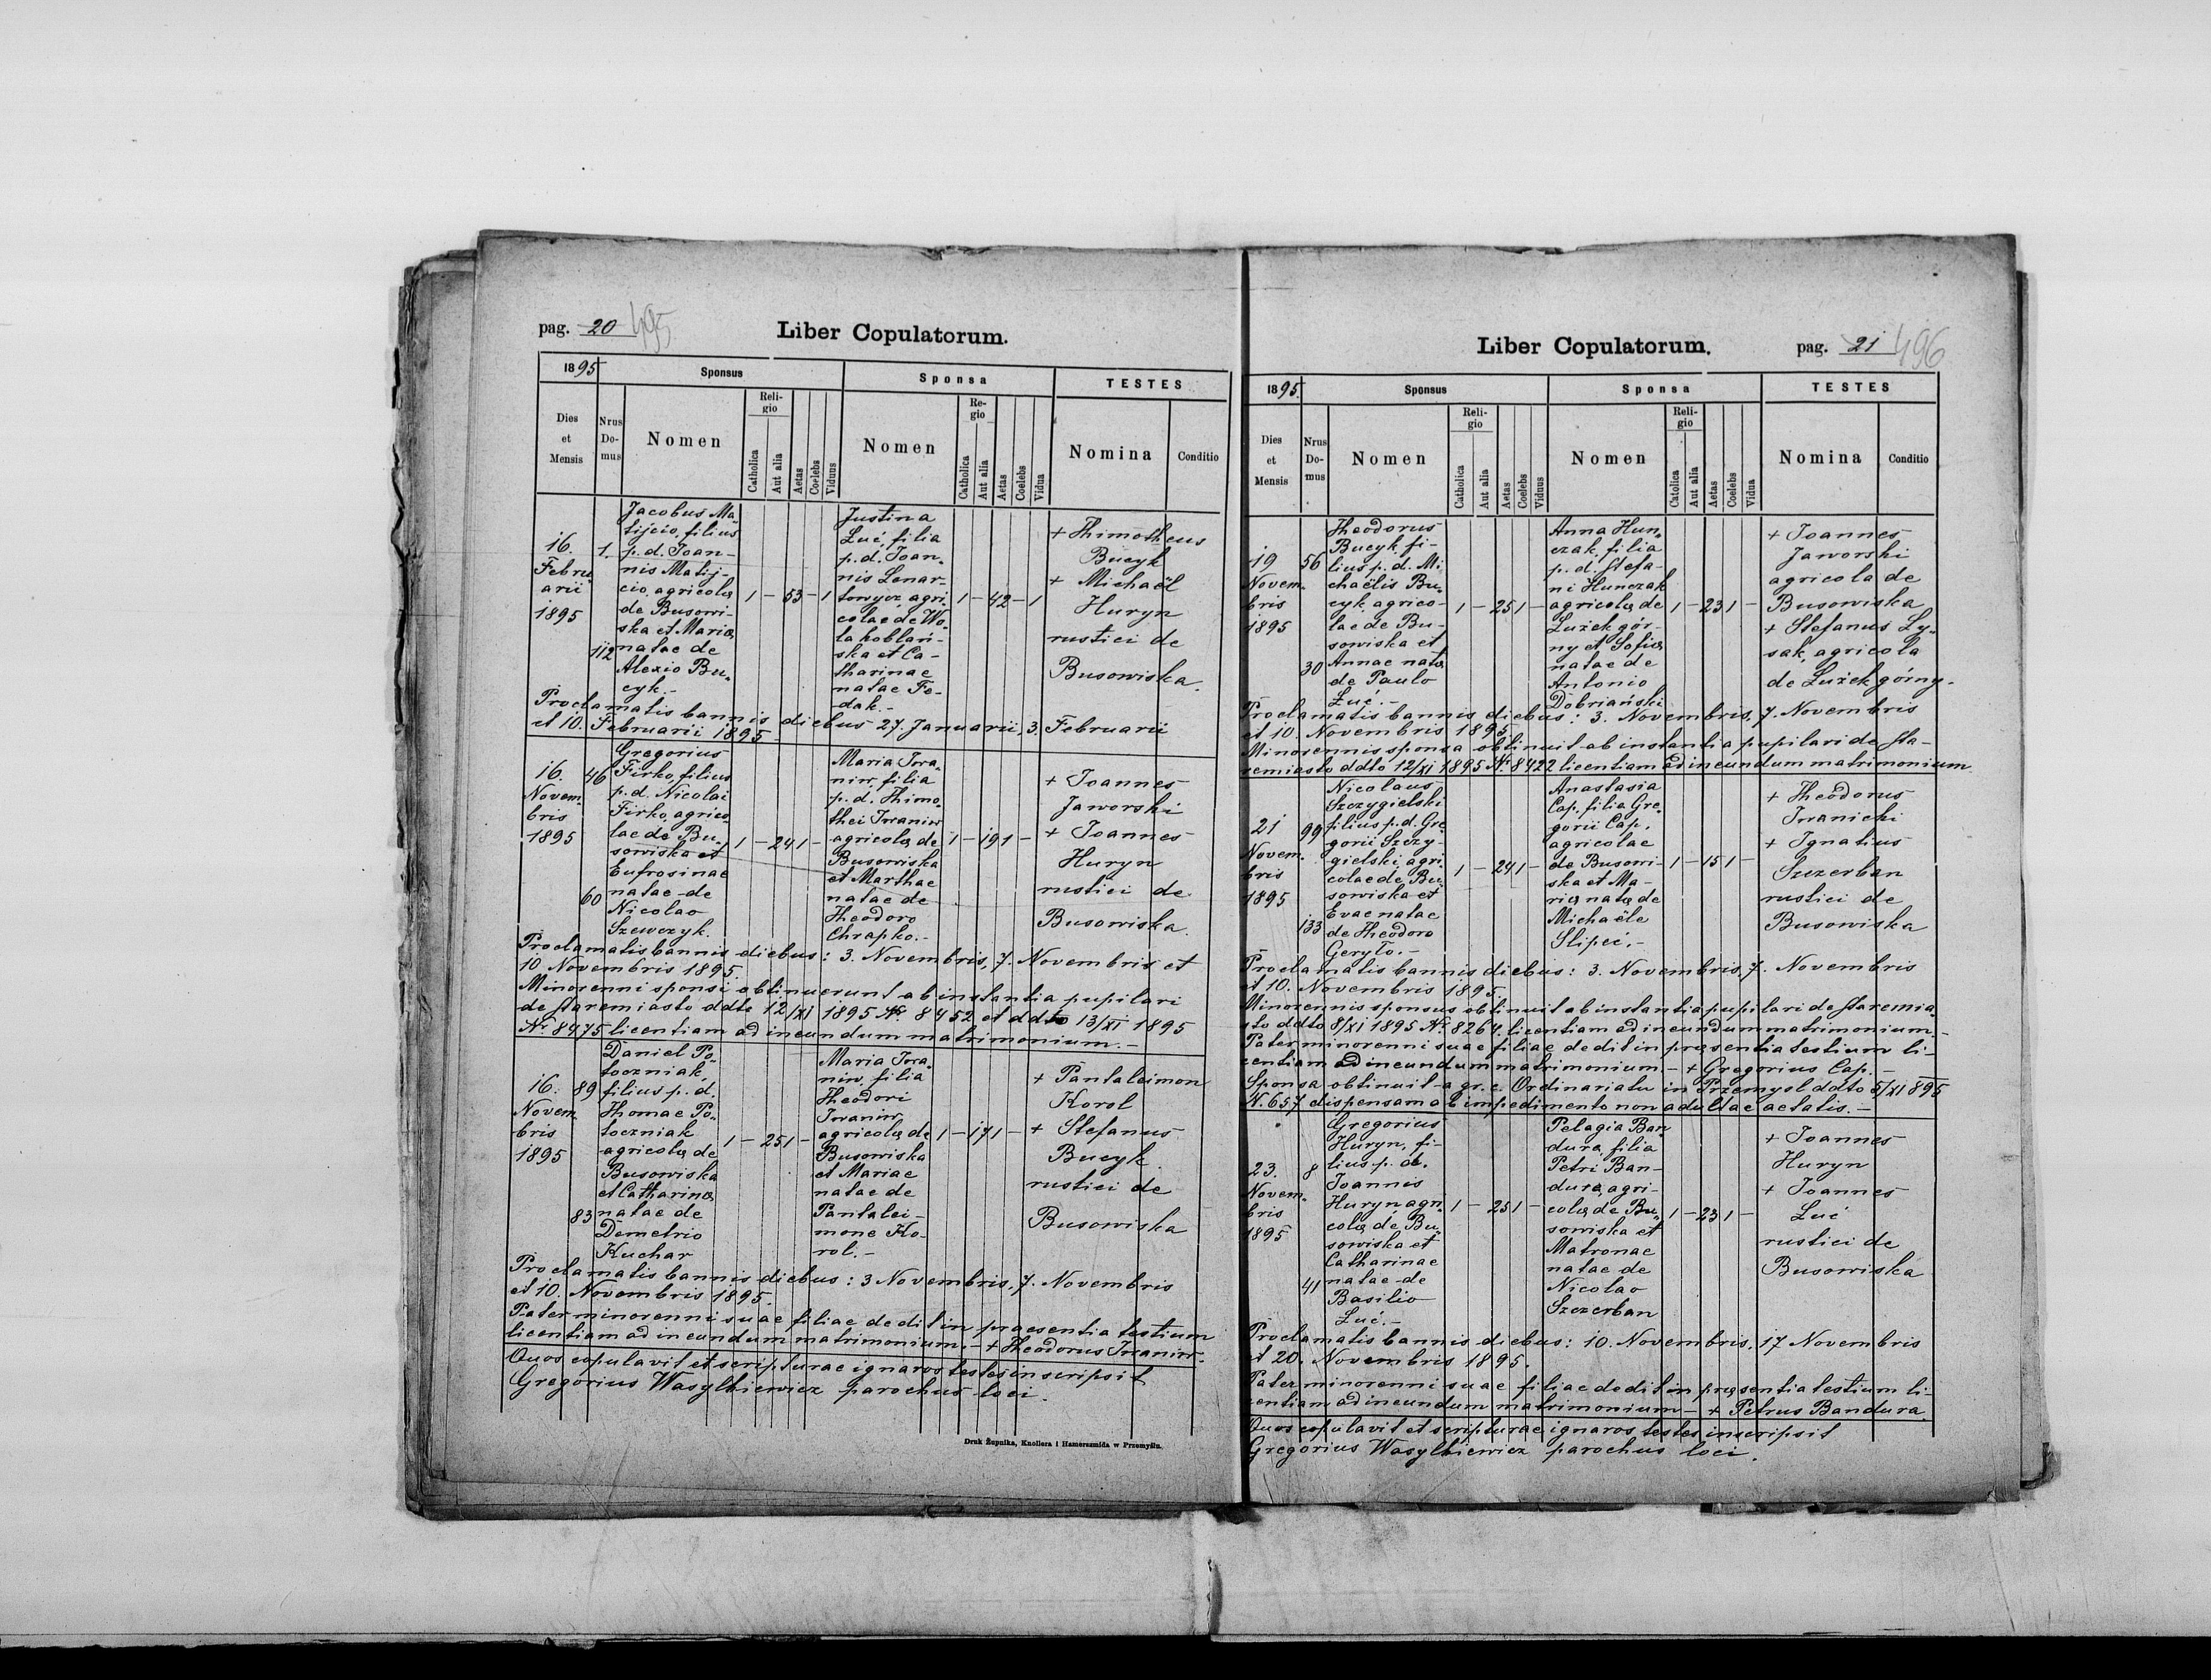 pag. 20 495
Liber Copulatorum.
1895
Sponsus
Sponsa
TESTES
Dies et Mensis
Nrus Domus
Nomen
Religio
Catholica
Aut alia
Aetas
Coelebs
Viduus
Nomen
Regio
Catholica
Aut alia
Aetas
Coelebs
Vidua
Nomina
Conditio
16.
Febru
arii
1895
1.
112
Jacobus Ma„
tijcio, filius
p. d. Joan-
nis Matij-
cio, agricolę
de Busowi-
ska et Marię
natae de
Alexio Bu„
cyk.-
1 - 53 - 1
Justina
Luć, filia
p. d. Joan„
nis Lenar-
towycz, agri-
colae de Wo„
la koblań-
ska et Ca-
tharinae
natae Fe-
dak.-
1 - 42 - 1
+ Thimotheus
Bucyk
+ Michaël
Huryn
rustici de
Busowiska.
Proclamatis bannis diebus 27. Januarii, 3. Februarii
et 10. Februarii 1895
16.
Novem„
bris
1895
46
60
Gregorius
Firko, filius
p. d. Nicolai
Firko, agrico„
lae de Bu„
sowiska et
Eufrosinae
natae de
Nicolao
Szewczyk.
1 - 24 1 -
Maria Iwa„
niw, filia
p. d. Thimo„
thei Iwaniw
agricolę de
Busowiska
et Marthae
natae de
Theodoro
Chrapko.-
1 - 19 1 -
+ Joannes
Jaworski
+ Joannes
Huryn
rustici de
Busowiska.
Proclamatis bannis diebus: 3. Novembris, 7. Novembris et
10. Novembris 1895.
Minorenni sponsi obtinuerunt ab instantia pupilari
de Staremiasto ddto 12/XI 1895 № 8452 et ddto 13/XI 1895
№ 8475 licentiam ad ineundum matrimonium.-
16.
Novem„
bris
1895
89
83
Daniel Po„
toczniak
filius p. d.
Thomae Po„
toczniak
agricolę de
Busowiska
et Catharinę
natae de
Demetrio
Kuchar
1 - 25 1 -
Maria Iwa„
niw, filia
Theodori
Iwaniw,
agricolę de
Busowiska
et Mariae
natae de
Pantalei-
mone Ko-
rol.-
1 - 17 1 -
+ Pantaleimon
Korol
+ Stefanus
Bucyk
rustici de
Busowiska
Proclamatis bannis diebus: 3 Novembris, 7. Novembris
et 10. Novembris 1895.
Pater minorenni suae filiae dedit in praesentia testium
licentiam ad ineundum matrimonium.- + Theodorus Iwaniw.
Quos copulavit et scripturae ignaros testes inscripsit
Gregorius Wasylkiewicz parochus loci.
Druk Żupnika, Knollera i Hamerszmida w Przemyślu.
Liber Copulatorum.
pag. 21 496
1895.
Sponsus
Sponsa
TESTES
Dies et Mensis
Nrus Domus
Nomen
Religio
Catholica
Aut alia
Aetas
Coelebs
Viduus
Nomen
Religio
Catolica
Aut alia
Aetas
Coelebs
Vidua
Nomina
Conditio
19
Novem„
bris
1895
56
30
Theodorus
Bucyk, fi-
lius p. d. Mi„
chaëlis Bu„
cyk, agrico-
lae de Bu-
sowiska et
Annae natę
de Paulo
Łuć.-
1 - 25 1 -
Anna Hun„
czak, filia
p. d. Stefa-
ni Hunczak
agricolę de
Łużek gór-
ny et Sofię
natae de
Antonio
Dobriański
1 - 23 1 -
+ Joannes
Jaworski
agricola de
Busowiska
+ Stefanus Ly„
sak, agricola
de Łużek górny.
Proclamatis bannis diebus: 3. Novembris, 7. Novembris
et 10. Novembris 1895.
Minorennis sponsa obtinuit ab instantia pupilari de Sta-
remiasto ddto 12/XI 1895 № 8422 licentiam ad ineundum matrimonium
21
Novem„
bris
1895
99
133
Nicolaus
Szczygielski
filius p. d. Gre„
gorii Szczy-
gielski agri
colae de Bu„
sowiska et
Evae natae
de Theodoro
Geryło.-
1 - 24 1 -
Anastasia
Cap, filia Gre„
gorii Cap,
agricolae
de Busowi-
ska et Ma-
rię natę de
Michaële
Slipeć.-
1 - 15 1 -
+ Theodorus
Iwanicki
+ Ignatius
Szczerban
rustici de
Busowiska
Proclamatis bannis diebus: 3. Novembris, 7. Novembris
et 10. Novembris 1895.
Minorennis sponsus obtinuit ab instantia pupilari de Staremia„
sto ddto 8/XI 1895 № 8264 licentiam ad ineundum matrimonium.-
Pater minorenni suae filiae dedit in pręsentia testium li-
centiam ad ineundum matrimonium.- + Gregorius Cap.-
Sponsa obtinuit a gr. c. Ordinariatu in Przemysl ddto 5/XI 895
N. 657 dispensam ab impedimento non adultae aetatis.-
23.
Novem„
bris
1895
8
41
Gregorius
Huryn, fi-
lius p. d.
Joannis
Huryn agri„
colę de Bu„
sowiska et
Catharinae
natae de
Basilio
Łuć.-
1 - 25 1 -
Pelagia Ban„
dura, filia
Petri Ban-
dura, agri-
colę de Bu„
sowiska et
Matronae
natae de
Nicolao
Szczerban
1 - 23 1 -
+ Joannes
Huryn
+ Joannes
Luć
rustici de
Busowiska
Proclamatis bannis diebus: 10. Novembris, 17 Novembris
et 20. Novembris 1895.
Pater minorenni suae filiae dedit in pręsentia testium li-
centiam ad ineundum matrimonium.- + Petrus Bandura.
Quos copulavit et scripturae ignaros testes inscripsit
Gregorius Wasylkiewicz parochus loci.